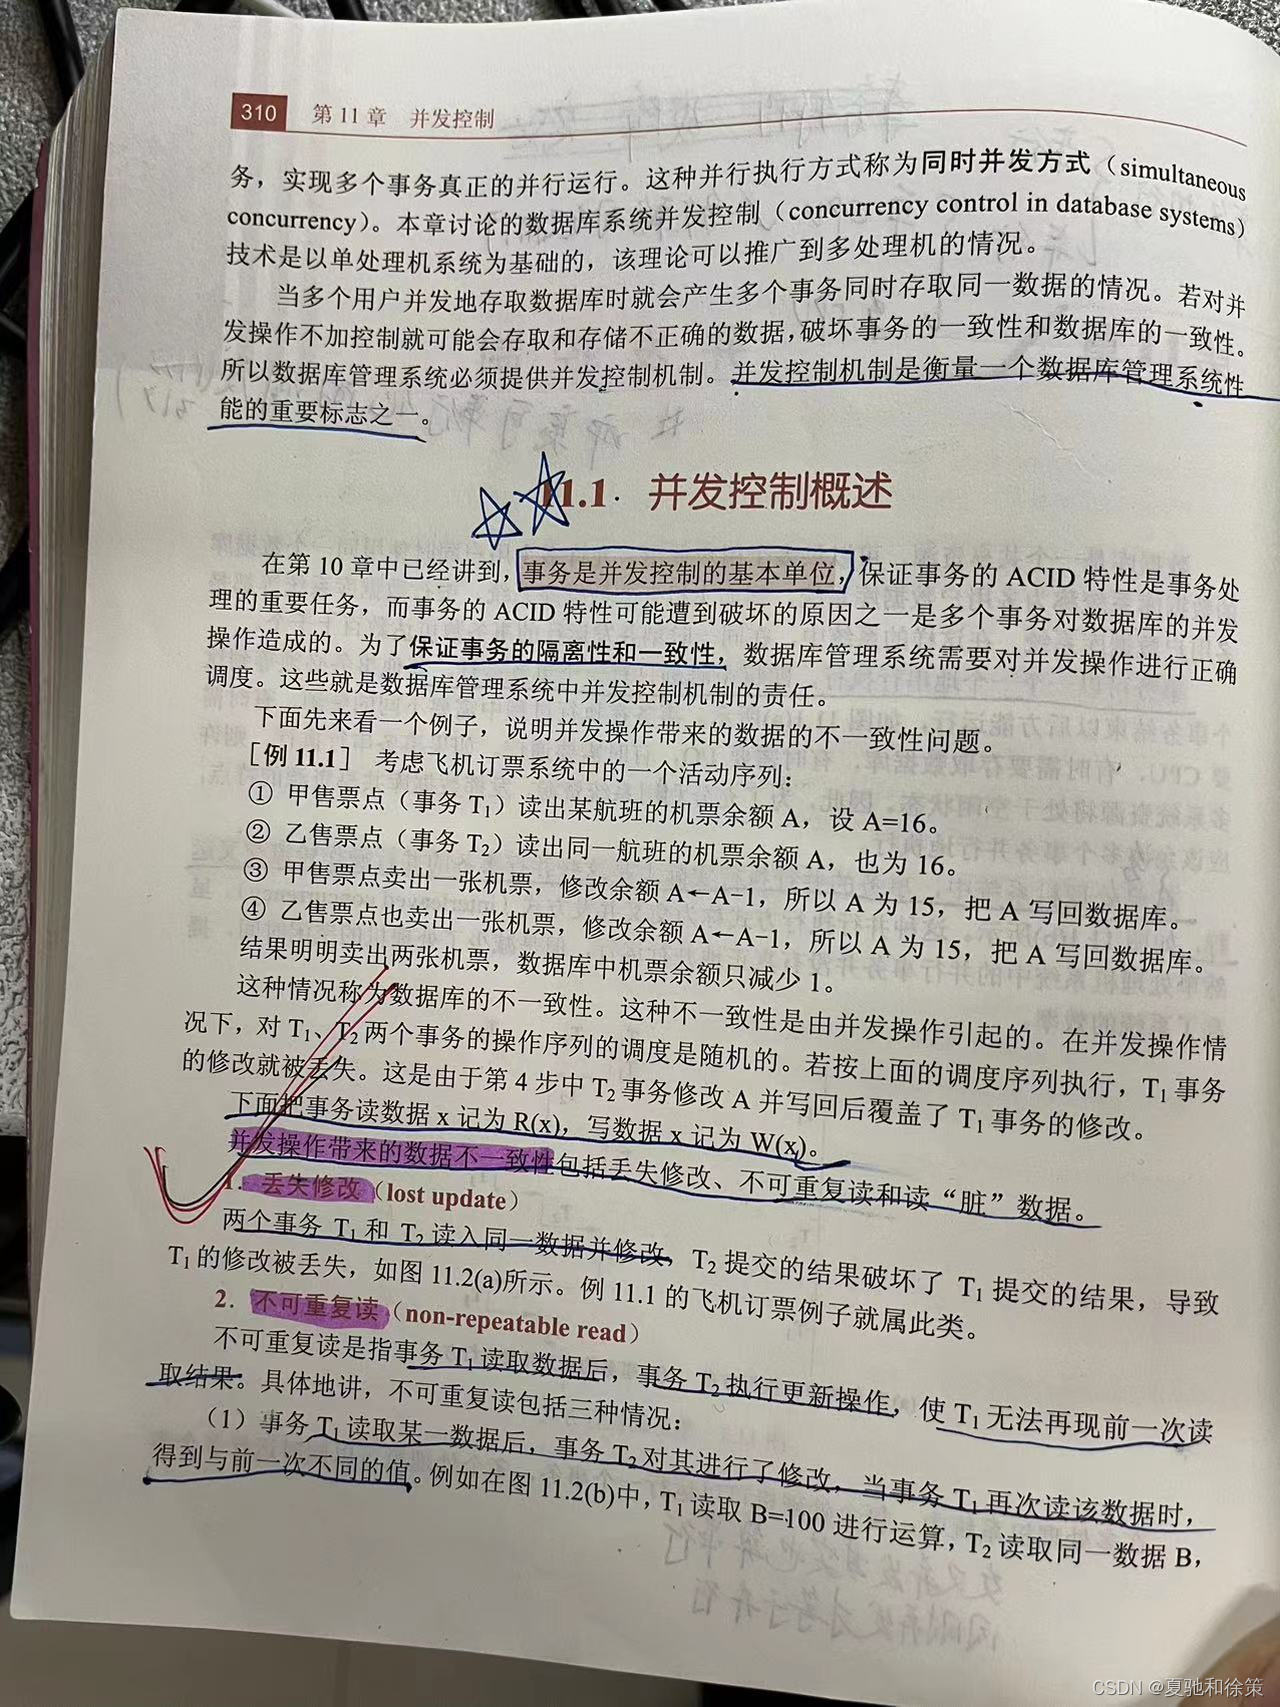 310 第 11 章 并发控制
务，实现多个事务真正的并行运行。这种并行执行方式称为同时并发方式（simultaneous
concurrency）。本章讨论的数据库系统并发控制（concurrency control in database systems）
技术是以单处理机系统为基础的，该理论可以推广到多处理机的情况。
当多个用户并发地存取数据库时就会产生多个事务同时存取同一数据的情况。若对并
发操作不加控制就可能会存取和存储不正确的数据，破坏事务的一致性和数据库的一致性。
所以数据库管理系统必须提供并发控制机制。并发控制机制是衡量一个数据库管理系统性
能的重要标志之一。
11.1 并发控制概述
在第 10 章中已经讲到，事务是并发控制的基本单位，保证事务的 ACID 特性是事务处
理的重要任务，而事务的 ACID 特性可能遭到破坏的原因之一是多个事务对数据库的并发
操作造成的。为了保证事务的隔离性和一致性，数据库管理系统需要对并发操作进行正确
调度。这些就是数据库管理系统中并发控制机制的责任。
下面先来看一个例子，说明并发操作带来的数据的不一致性问题。
［例 11.1］ 考虑飞机订票系统中的一个活动序列：
① 甲售票点（事务 T₁）读出某航班的机票余额 A，设 A=16。
② 乙售票点（事务 T₂）读出同一航班的机票余额 A，也为 16。
③ 甲售票点卖出一张机票，修改余额 A←A-1，所以 A 为 15，把 A 写回数据库。
④ 乙售票点也卖出一张机票，修改余额 A←A-1，所以 A 为 15，把 A 写回数据库。
结果明明卖出两张机票，数据库中机票余额只减少 1。
这种情况称为数据库的不一致性。这种不一致性是由并发操作引起的。在并发操作情
况下，对 T₁、T₂ 两个事务的操作序列的调度是随机的。若按上面的调度序列执行，T₁ 事务
的修改就被丢失。这是由于第 4 步中 T₂ 事务修改 A 并写回后覆盖了 T₁ 事务的修改。
下面把事务读数据 x 记为 R(x)，写数据 x 记为 W(x)。
并发操作带来的数据不一致性包括丢失修改、不可重复读和读“脏”数据。
1. 丢失修改（lost update）
两个事务 T₁ 和 T₂ 读入同一数据并修改，T₂ 提交的结果破坏了 T₁ 提交的结果，导致
T₁ 的修改被丢失，如图 11.2(a)所示。例 11.1 的飞机订票例子就属此类。
2. 不可重复读（non-repeatable read）
不可重复读是指事务 T₁ 读取数据后，事务 T₂ 执行更新操作，使 T₁ 无法再现前一次读
取结果。具体地讲，不可重复读包括三种情况：
（1）事务 T₁ 读取某一数据后，事务 T₂ 对其进行了修改，当事务 T₁ 再次读该数据时，
得到与前一次不同的值。例如在图 11.2(b)中，T₁ 读取 B=100 进行运算，T₂ 读取同一数据 B，
CSDN @夏驰和徐策